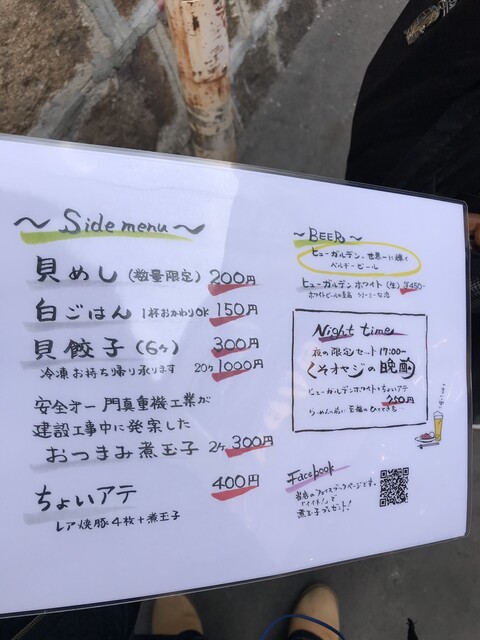 ～ Side menu ～
貝めし (数量限定) 200円
白ごはん 1杯おかわりOK 150円
貝餃子 (6ヶ) 300円
冷凍お持ち帰り承ります 20ヶ 1000円
安全オー 門真重機工業が
建設工事中に発案した
おつまみ煮玉子 2ヶ 300円
ちょいアテ 400円
レア焼豚4枚+煮玉子
～BEER～
ヒューガルデン、世界一に輝く
ベルギービール
ヒューガルデン ホワイト (生) ¥450-
Night time
夜の限定セット 17:00〜
くそオヤジの晩酌
ヒューガルデンホワイト+ちょいアテ
750円
Facebook
当店のフェイスブックページです。
「イイネ！」で
煮玉子プレゼント！